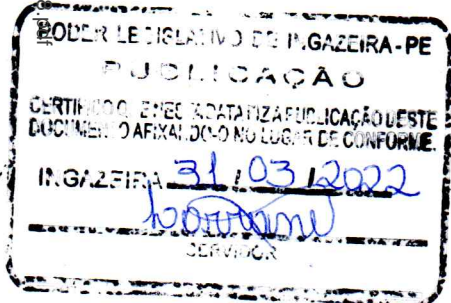 PODER LEGISLATIVO DE INGAZEIRA-PE
PUBLICAÇÃO
CERTIFICO QUE NESTA DATA FIZ A PUBLICAÇÃO DESTE
DOCUMENTO AFIXANDO-O NO LUGAR DE CONFORME.
INGAZEIRA 31 / 03 / 2022
SERVIDOR